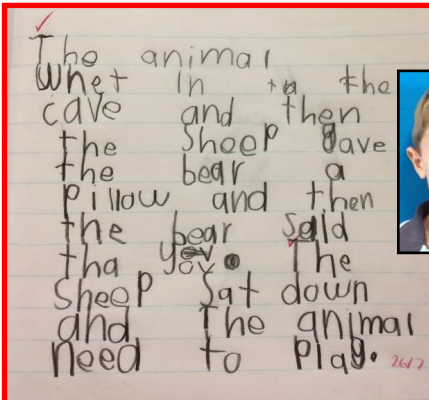 The animal
Whet in ta the
cave and then
the Sheep gave
the bear a
Pillow and then
the bear Said
tha you. The
Sheep Sat down
and The animal
need to Play. 26/7